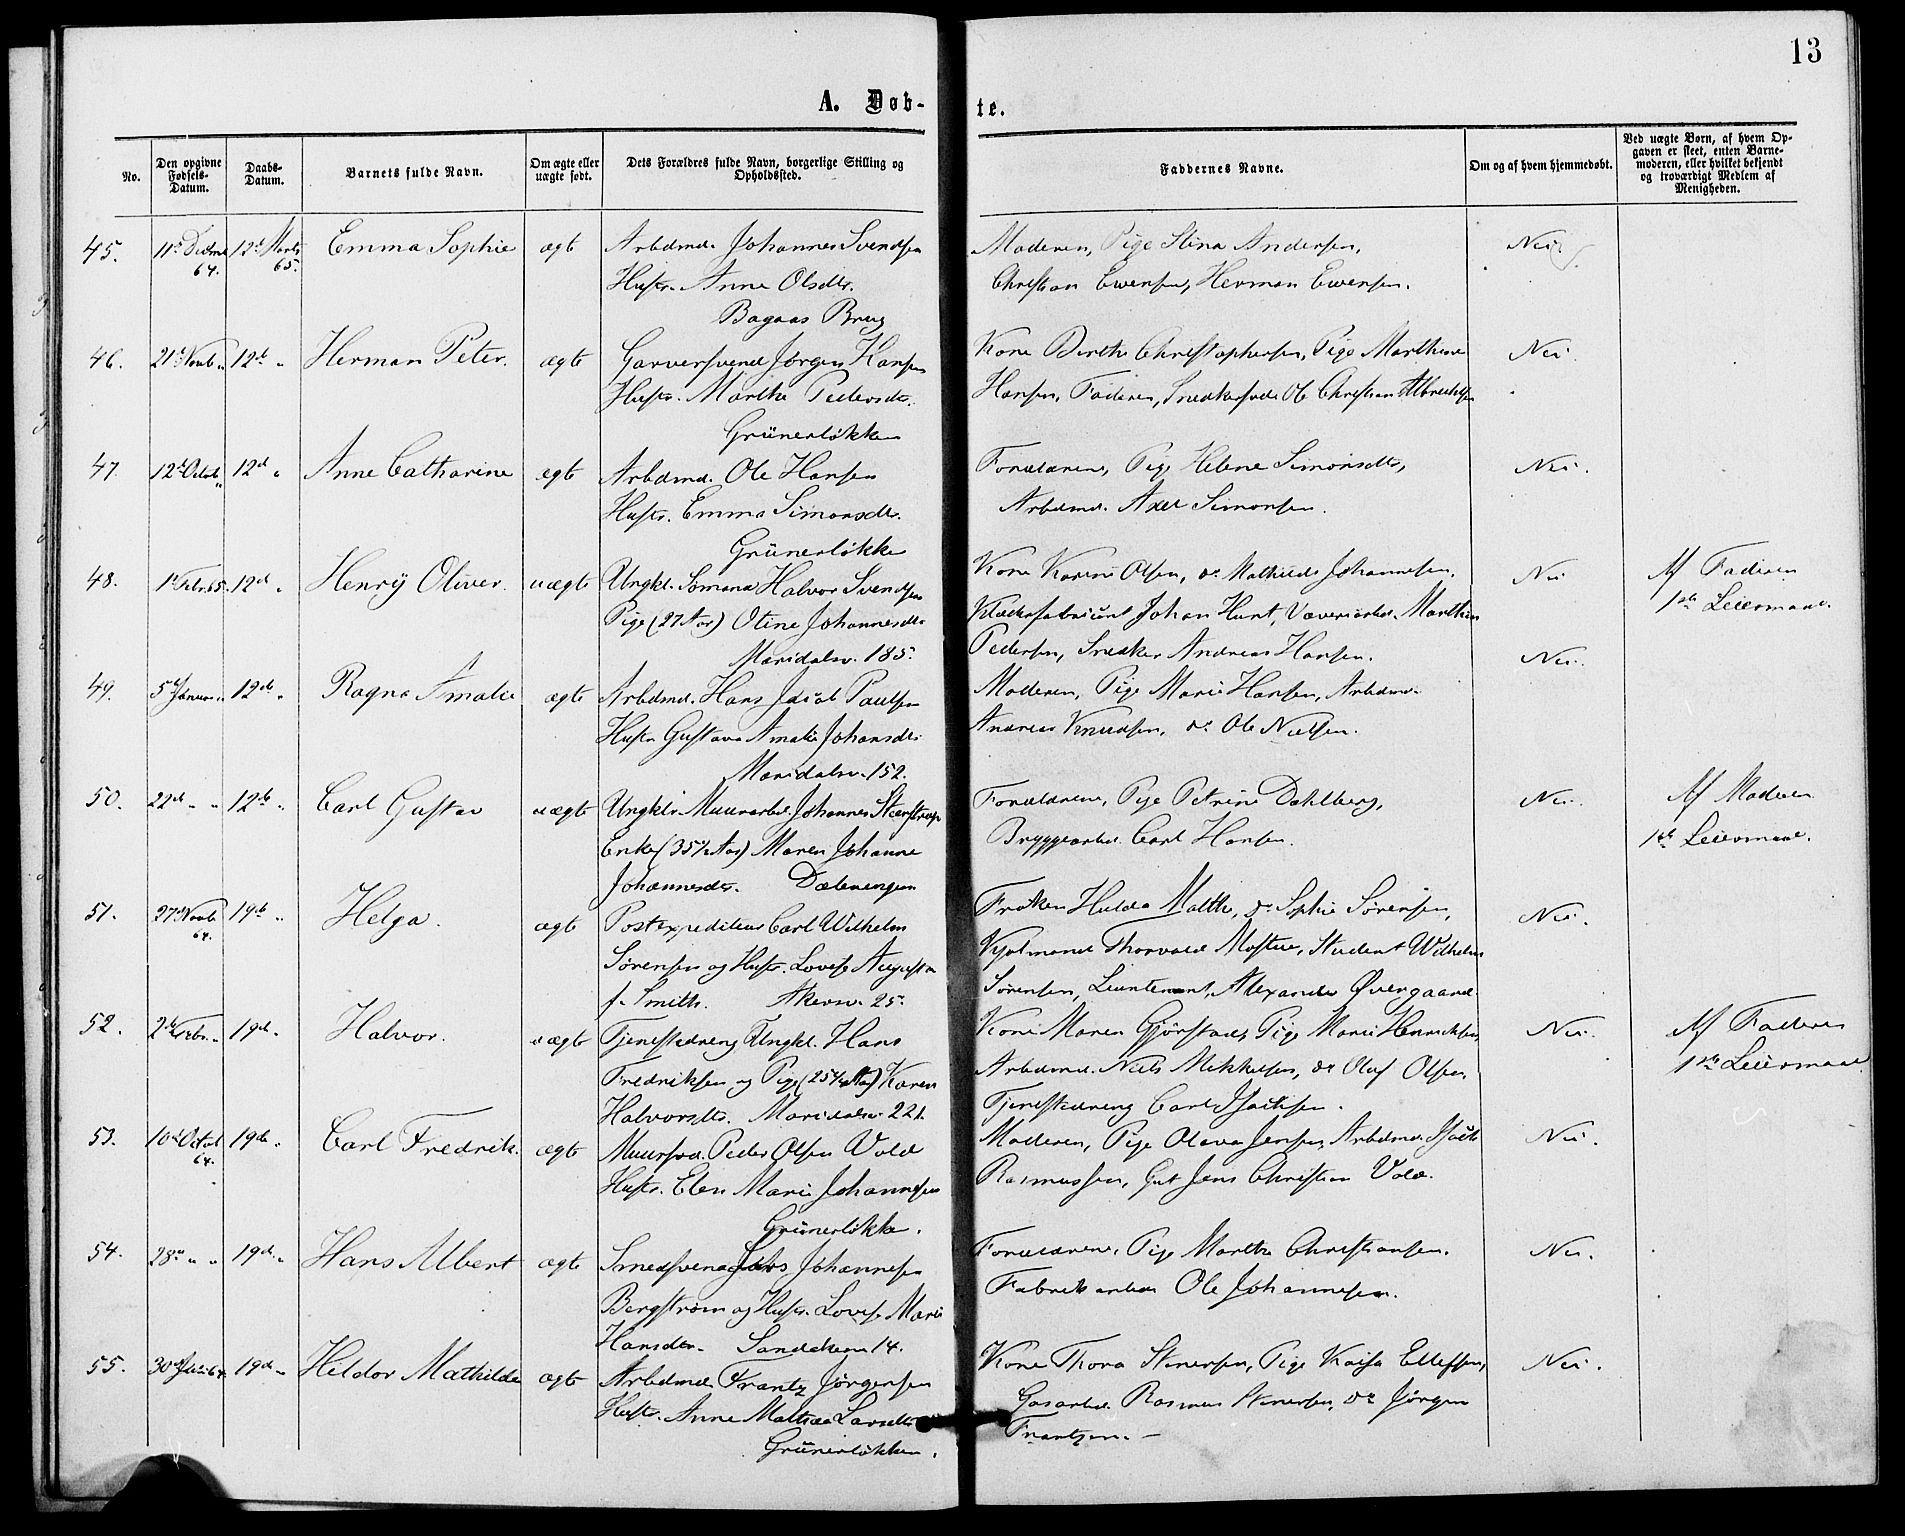 13
A. Døb-
te.
No.
Den opgivne Fødsels-Datum.
Daabs-Datum.
Barnets fulde Navn.
Om ægte eller uægte født.
Dets Forældres fulde Navn, borgerlige Stilling og Opholdssted.
Faddernes Navne.
Om og af hvem hjemmedøbt.
Ved uægte Børn, af hvem Op-
gaven er skeet, enten Barne-
moderen, eller hvilket bekjendt
og troværdigt Medlem af
Menigheden.
45. 11te Decbr 64. 12te Marts 65. Emma Sophie ægte Arbdmd. Johannes Svendsen
Hustr. Anne Olsdtr.
Bagaas Brug
Moderen, Pige Stina Andersen,
Christian Evensen, Herman Evensen.
Nei.
46. 21de Novb " 12te " Herman Peter. ægte Garversvend Jørgen Hansen
Hustr. Marthe Pedersdtr.
Grünerløkken
Kone Birthe Christophersen, Pige Marthine
Hansen, Faderen, Snedkersvd. Ole Christian Albrechtsen
Nei.
47. 12te Octob " 12te " Anne Catharine ægte Arbdmd. Ole Hansen
Hustr. Emma Simonsdtr.
Grünerløkke
Forældrene, Pige Helene Simonsdtr,
Arbdmd. Axel Simonsen.
Nei.
48. 1ste Febr 65. 12te " Henrÿ Oliver. uægte Ungkl. Sømand Halvor Svendsen
Pige (27 Aar) Otine Johannesdtr
Maridalsv. 185.
Kone Karine Olsen, do Mathilde Johannesen,
Johan Hunt, Væveriarbd. Marthin
Pedersen, Snedker Andreas Hansen.
Nei
Af Faderen
1ste Leiermaal.
49. 5te Januar " 12te " Ragna Amalie ægte Arbdmd. Hans Jacob Paulsen
Hustr Gustava Amalie Johansdtr
Maridalsv. 152.
Moderen, Pige Marie Hansen, Arbdmd.
Andreas Knudsen, do Ole Nielsen.
Nei.
50. 22de " " 12te " Carl Gustav uægte Ungkl. Muurarbd. Johannes
Enke (35½ Aar) Maren Johanne
Johannesdtr. Dælenengen
Forældrene, Pige Petrine Dahlberg,
Bryggearbd. Carl Hansen.
Nei.
Af Moderen
1ste Leiermaal.
51. 27de Novb 64. 19de " Helga. ægte Postexpediteur Carl Wilhelm
Sørensen og Hustr. Lovise Augusta
f. Smith. Akersv. 25.
Frøken Hulda Malthe, do Sophie Sørensen,
Thorvald Student Wilhelm
Sørensen, Lieutenant Alexander Øvergaard.
Nei.
52. 2den Febr. " 19de " Halvor. uægte Tjenestedreng Ungkl. Hans
Fredriksen og Pige (25½ Aar) Karen
Halvorsdtr. Maridalsv. 221.
Kone Maren Gjørstad, Pige Marie Henriksen,
Arbdmd. Niels Mikkelsen, do Oluf Olsen,
Tjenestedreng Carl Isachsen.
Nei.
Af Faderen
1ste Leiermaal
53. 10de Octob 64. 19de " Carl Fredrik. ægte Muursvd. Peder Olsen Vold
Hustr. Elen Marie Johannesen
Grünerløkke.
Moderen, Pige Olava Jensen, Arbdmd. Isak
Rasmussen, Gut Jens Christian Vold.
Nei.
54. 28de " " 19de " Hans Albert ægte Smedsvend Lars Johannesen
Bergstrøm og Hustr. Lovise Marie
Hansdtr. Sandakerv. 14.
Forældrene, Pige Marthe Christiansen.
Fabrikarbdr Ole Johannesen.
Nei.
55. 30te Juli 64 19de " Hildor Mathilde ægte Arbdmd. Frantz Jørgensen
Hustr. Anne Mathea Larsdtr
Grünerløkken.
Kone Thora Stenersen, Pige Kaisa Ellefsen,
Gasarbd. Rasmus Stenersen, do Jørgen
Frantzen.
Nei.